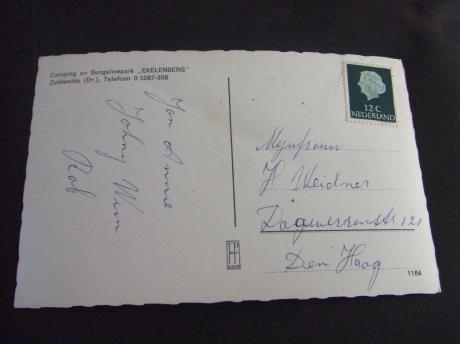 Camping en Bungalowpark „EKELENBERG"
Zuidwolde (Dr.), Telefoon 0 5287-356
Jan Annie
Johny Wim
Rob
12 C
NEDERLAND
Mejufrouw
H Weidner
121
Den Haag
1184